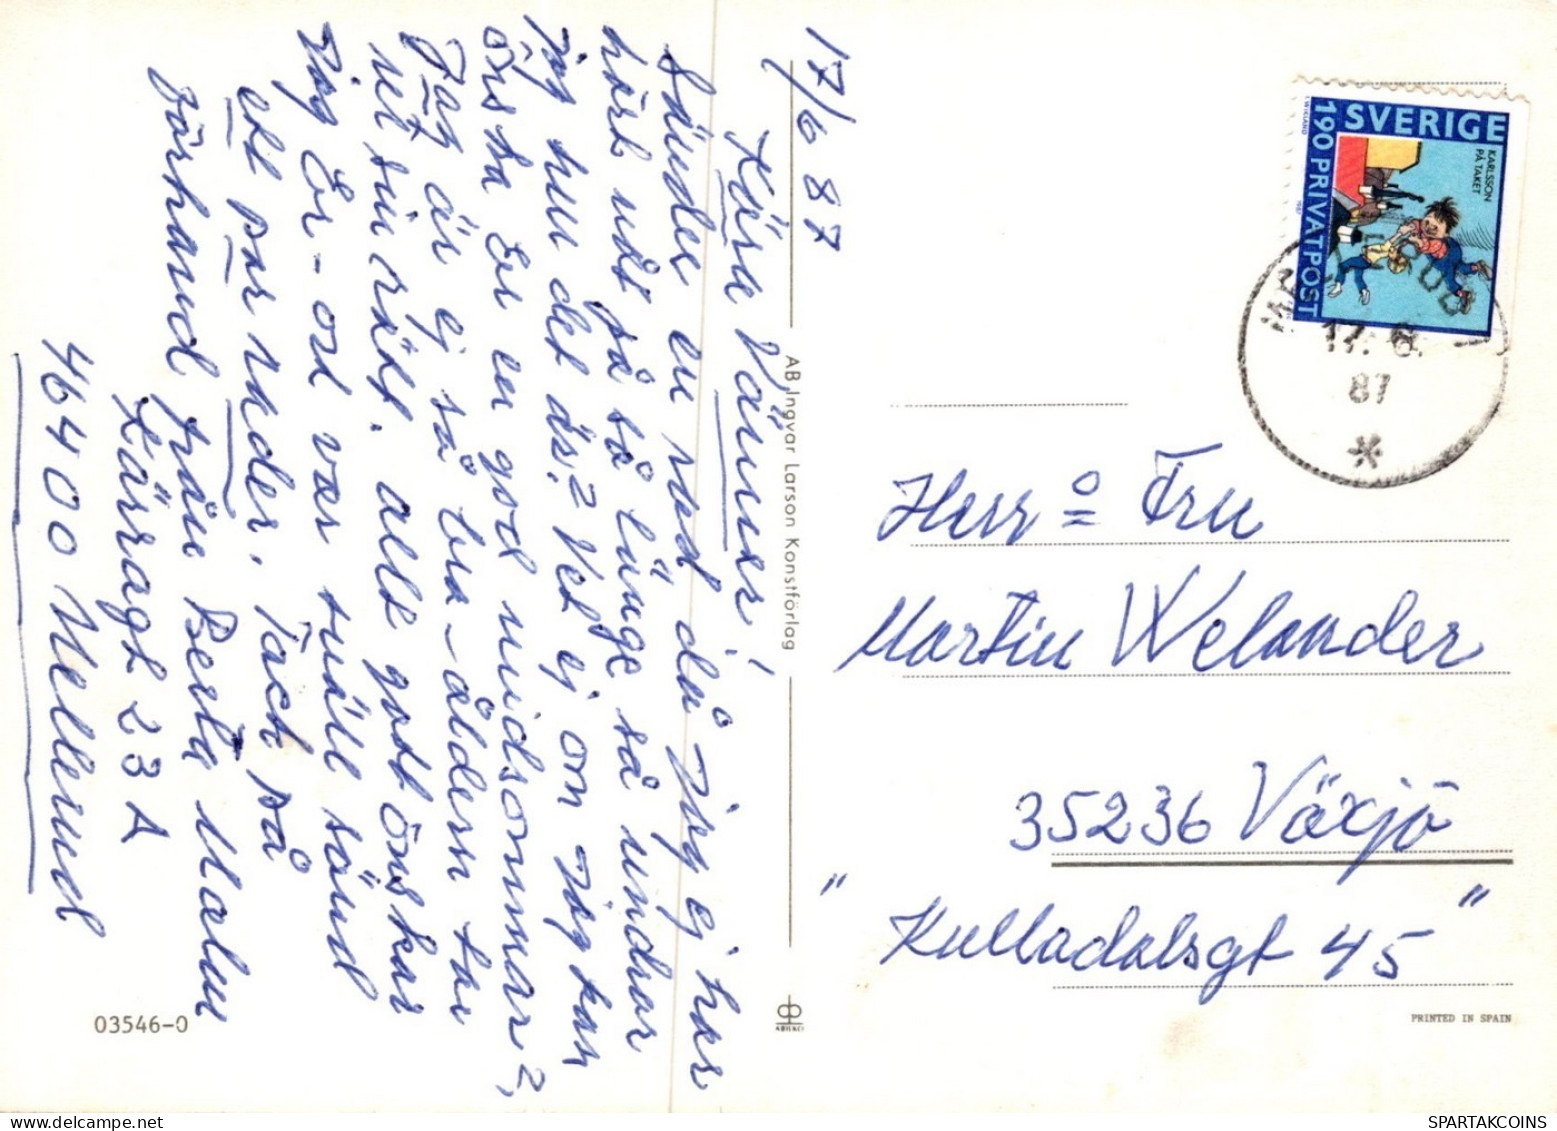 17/6 87
Kära Vänner!
Sänder en rad då jag ej har
hört utå på så länge så undrar
jag hur det är? Vet ej om jag kan
önska Er en god midsommar?
Jag är ej så bra – åldern tar
ut sin rätt. allt gott önskar
jag Er – ord var snäll sänd
ett par rader. Tack på
förhand från Berta Malm
Kärragt 23 A
46400 Mellerud
AB Ingvar Larson Konstförlag
03546-0
SVERIGE
190 PRIVATPOST
KARLSSON
PÅ TAKET
17. 6.
87
Herr o Fru
Martin Welander
35236 Växjö
" Kulladalsgt 45 "
PRINTED IN SPAIN
SPARTAKCOINS